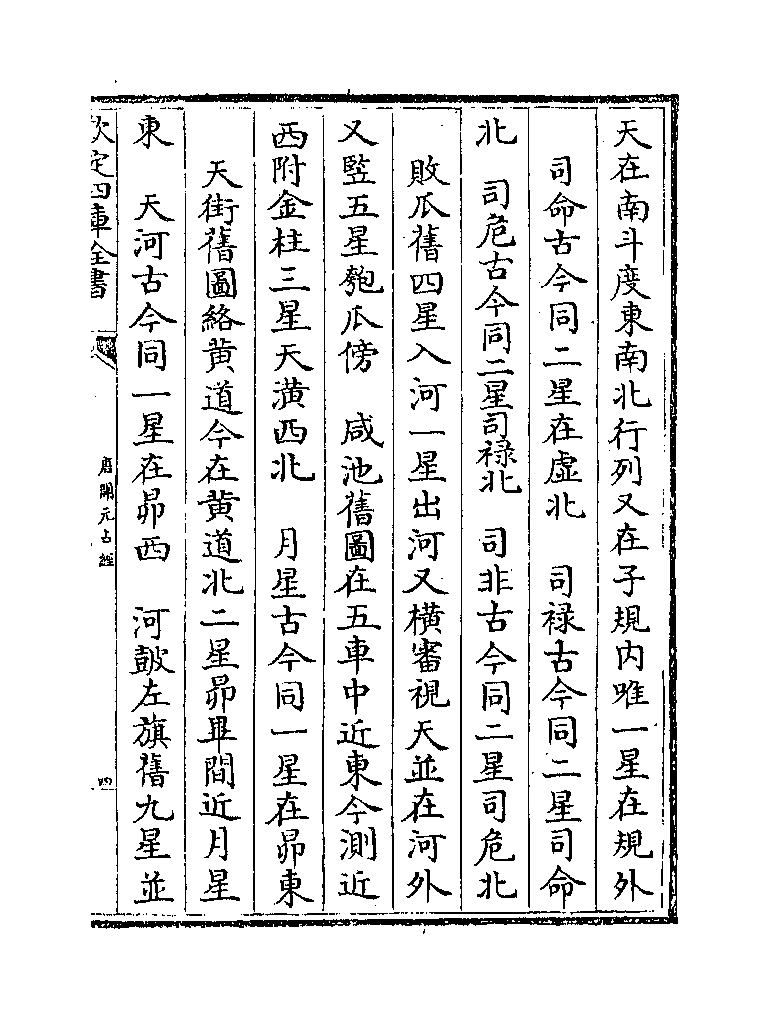 天在南斗度東南北行列又在子規内唯一星在規外
司命古今同二星在虛北　司禄古今同二星司命
北　司危古今同二星司禄北　司非古今同二星司危北
敗瓜舊四星入河一星出河又橫審視天並在河外
又竪五星匏瓜傍　咸池舊圖在五車中近東今測近
西附金柱三星天潢西北　月星古今同一星在昴東
天街舊圖絡黄道今在黄道北二星昴畢間近月星
東　天河古今同一星在昴西　河鼓左旗舊九星並
欽定四庫全書
唐開元占經
四